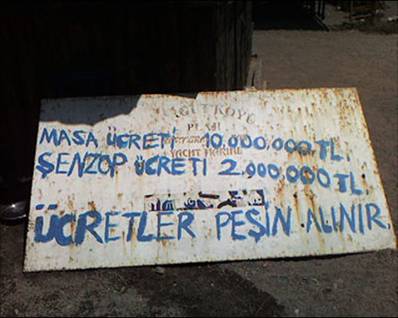 PLAJ
MASA ÜCRETİ 10.000.000.TL.
YACHT MARINE
ŞENZOP ÜCRETİ 2.000.000 TL.
ÜCRETLER PEŞİN ALINIR.